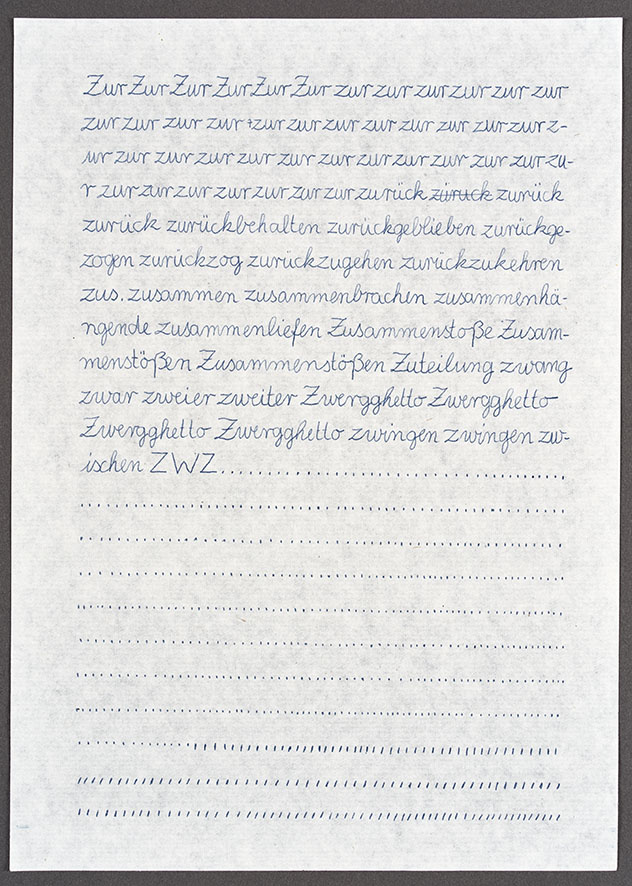 Zur Zur Zur Zur Zur Zur zur zur zur zur zur zur
zur zur zur zur zur zur zur zur zur zur zur zur z-
ur zur zur zur zur zur zur zur zur zur zur zur zu-
r zur zur zur zur zur zur zur zurück zürück zurück
zurück zurückbehalten zurückgeblieben zurückge-
zogen zurückzog zurückzugehen zurückzukehren
zus. zusammen zusammenbrachen zusammenhä-
ngende zusammenliefen Zusammenstoße Zusam-
menstößen Zusammenstößen Zuteilung zwang
zwar zweier zweiter Zwergghetto Zwergghetto
Zwergghetto Zwergghetto zwingen zwingen zw-
ischen ZWZ...........................................